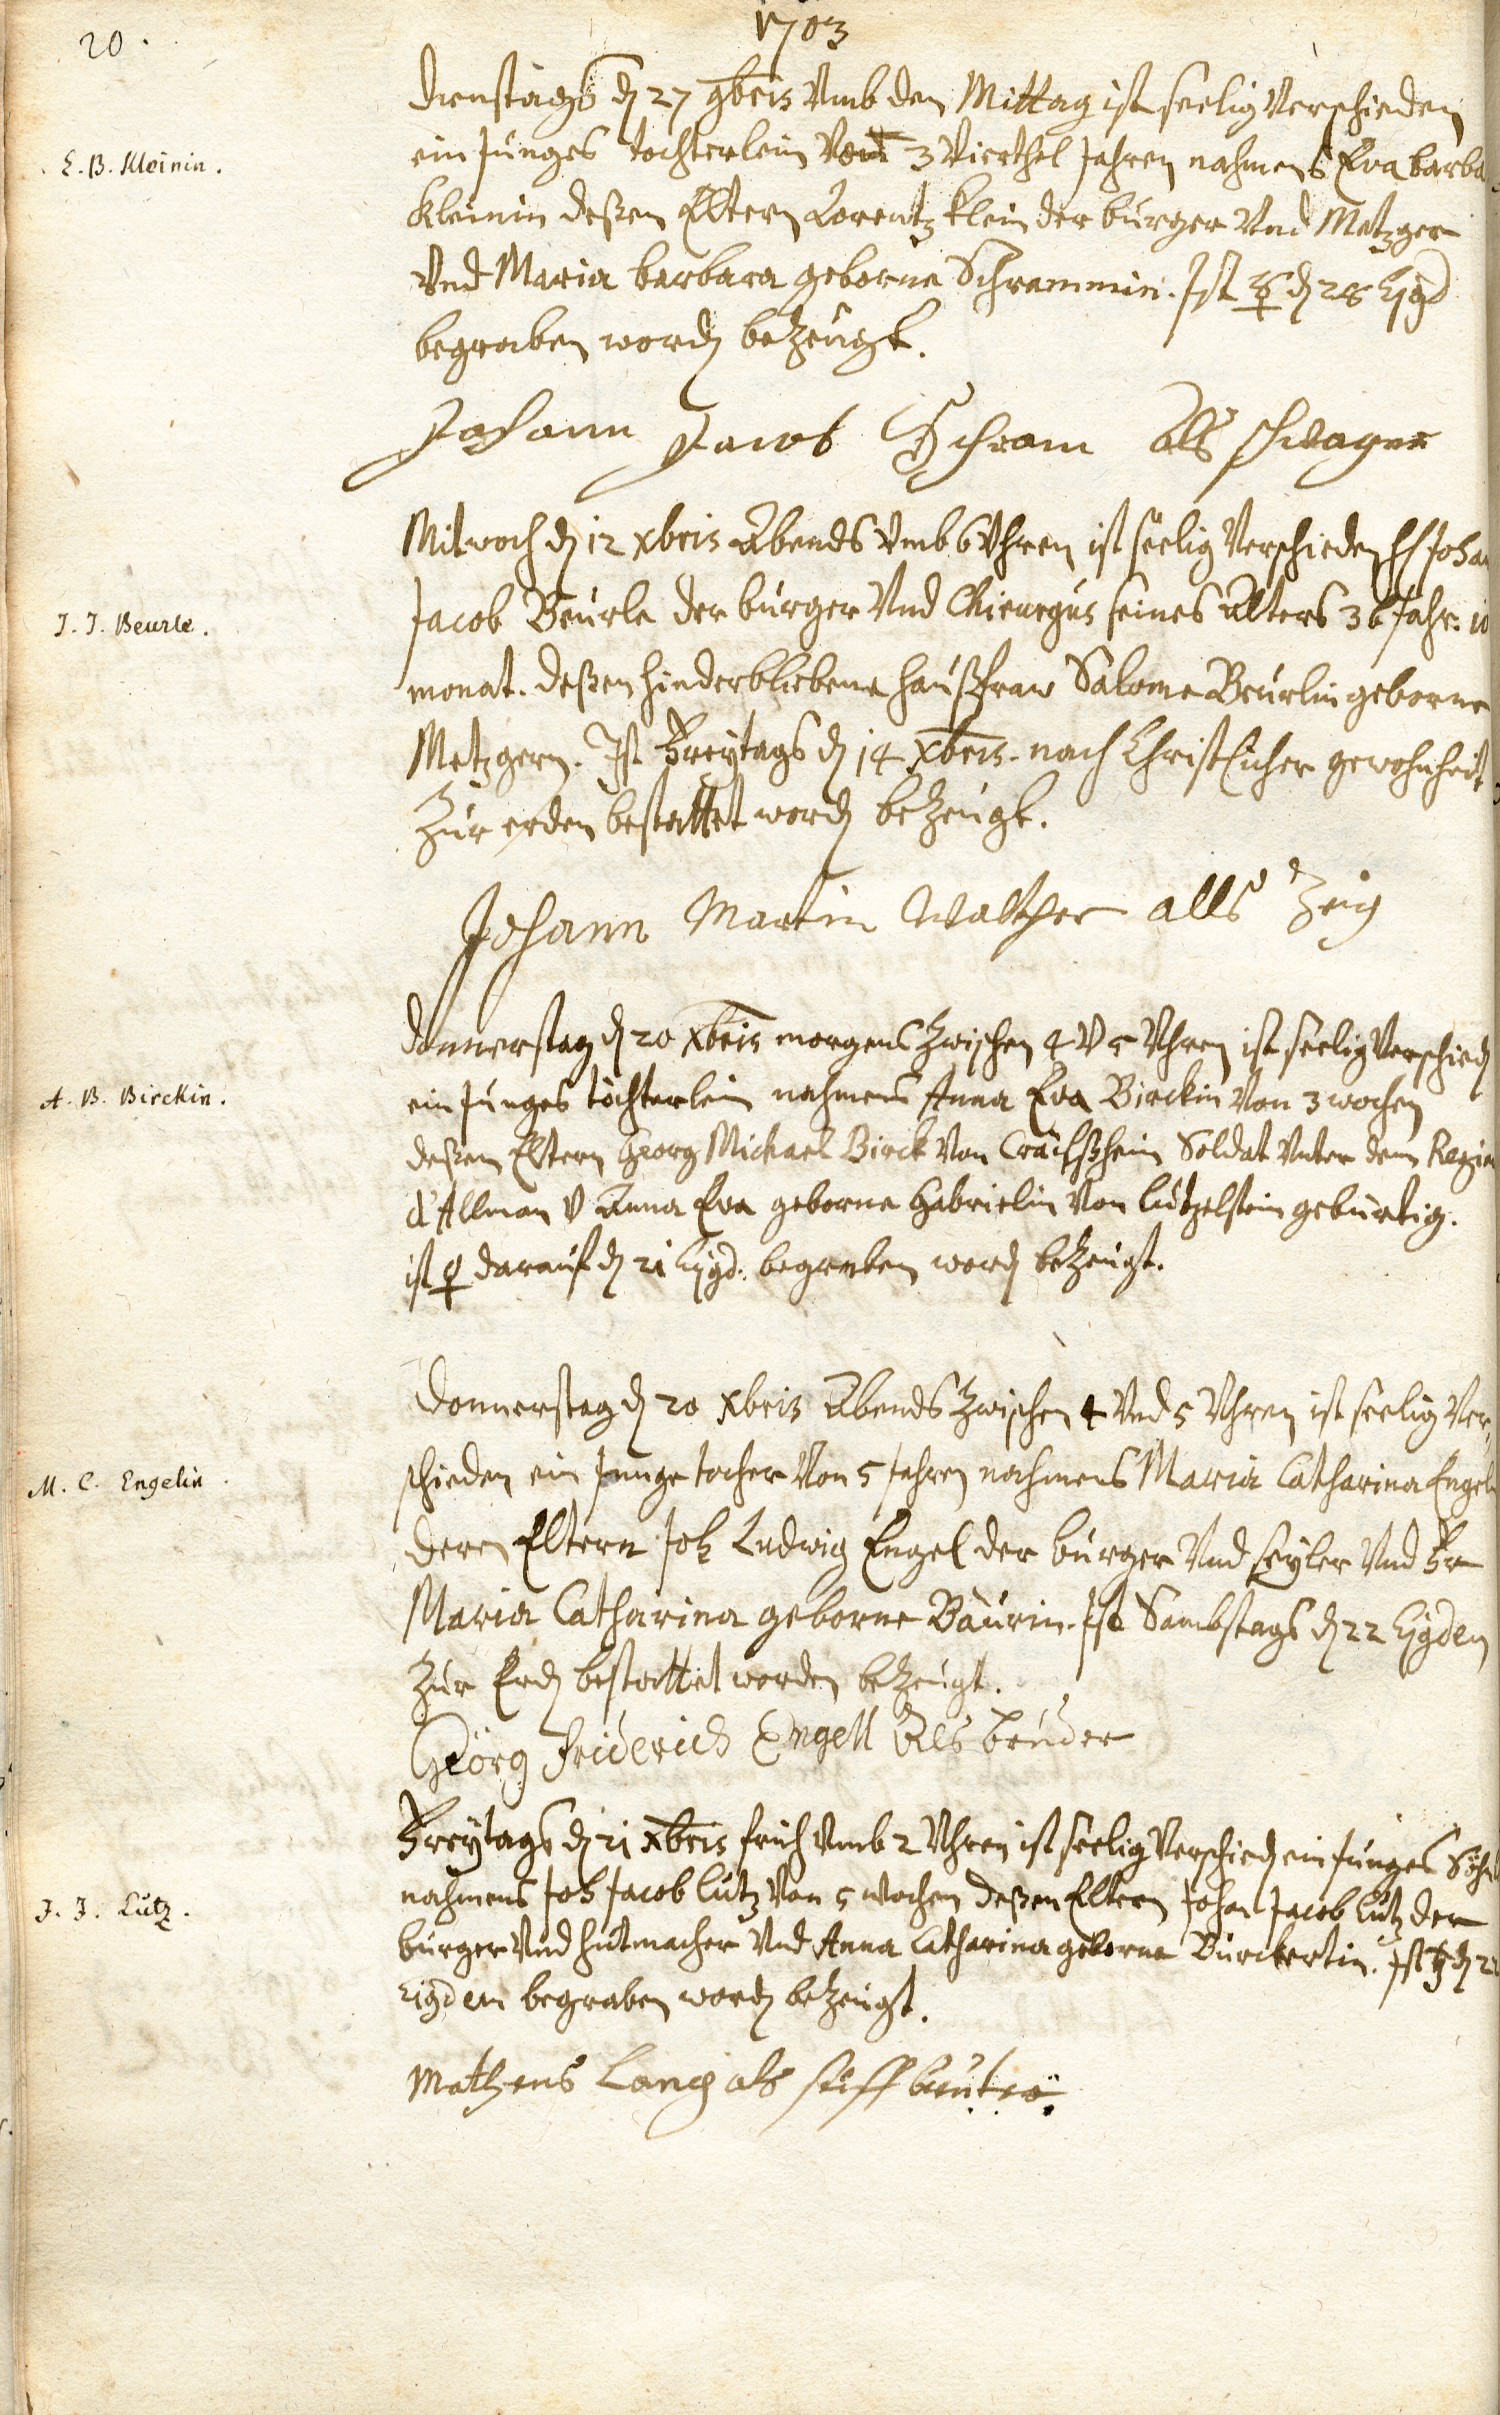 20.
1703
E. B. Kleinin.
Dienstags d. 27 9bris Vmb den Mittag ist seelig Verschieden
ein Junges tochterlein Von 3 Vierthel Jahren nahmens Eva barba
Kleinin deßen Eltern Lorentz Klein der burger Vnd Metzger
Vnd Maria barbara geborne Schrammin. Ist ☿ d. 28 Ejgd
begraben word. bezeugt.
Johann Jacob Schram Als schwager
J. J. Beurle.
Mitwoch d. 12 Xbris Abends Vmb 6 Vhren ist seelig Verschieden H. Johan
Jacob Beurle der burger Vnd Chirurgus seines Alters 36 Jahr. 10
monat. deßen hinderbliebene haußfraw Salome Beurlin geborne
Metzgern. Ist Freytags d. 14 Xbris. nach Christlicher gewohnheit
Zur erden bestattet word. bezeugt.
Johann Martin Walther alls Zeig
A. B. Birckin.
Donnerstag d. 20 Xbris morgens Zwischen 4 V 5 Vhren ist seelig Verschied.
ein Junges töchterlein nahmens Anna Eva Birckin Von 3 wochen
deßen Eltern Georg Michael Birck Von Soldat Vnter dem Regim
d'Allman V Anna Eva geborne Gabrielin Von Lützelstein gebürtig.
ist ♀ darauf d. 21 Ejgd. begraben word. bezeugt.
M. C. Engelin.
Donnerstag d. 20 Xbris Abends Zwischen 4 Vnd 5 Vhren ist seelig Ver,
schieden ein Junge tocher Von 5 Jahren nahmens Maria Catharina Engel
deren Eltern Joh Ludwig Engel der burger Vnd seyler Vnd Fr
Maria Catharina geborne Baurin. Ist Sambstags d. 22 Ejgden
Zur Erd. bestattet worden bezeugt.
Georg friderich Engell Als bruder
J. J. Lutz.
Freytags d. 21 Xbris früh Vmb 2 Vhren ist seelig Verschied. ein Junges Söhnl
nahmens Joh Jacob Lutz Von 5 wochen deßen Eltern Johan Jacob Lutz der
burger Vnd hutmacher Vnd Anna Catharina geborne Burckertin. Ist ♄ d. 22
Ejgden begraben word. bezeugt.
Matheus Lang als stiff bruter